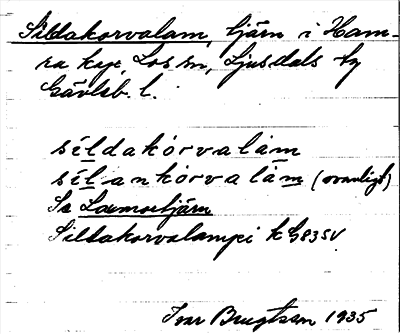 Sildakorvalam, tjärn i Ham-
ra kap, Los sn, Ljusdals
Gävleb. l.
síldakórvalám
sílankórvalám (ovanligt)
Se Loemortjärn
Sildakorvalampi k G83SV
Ivar Bengtsson 1935